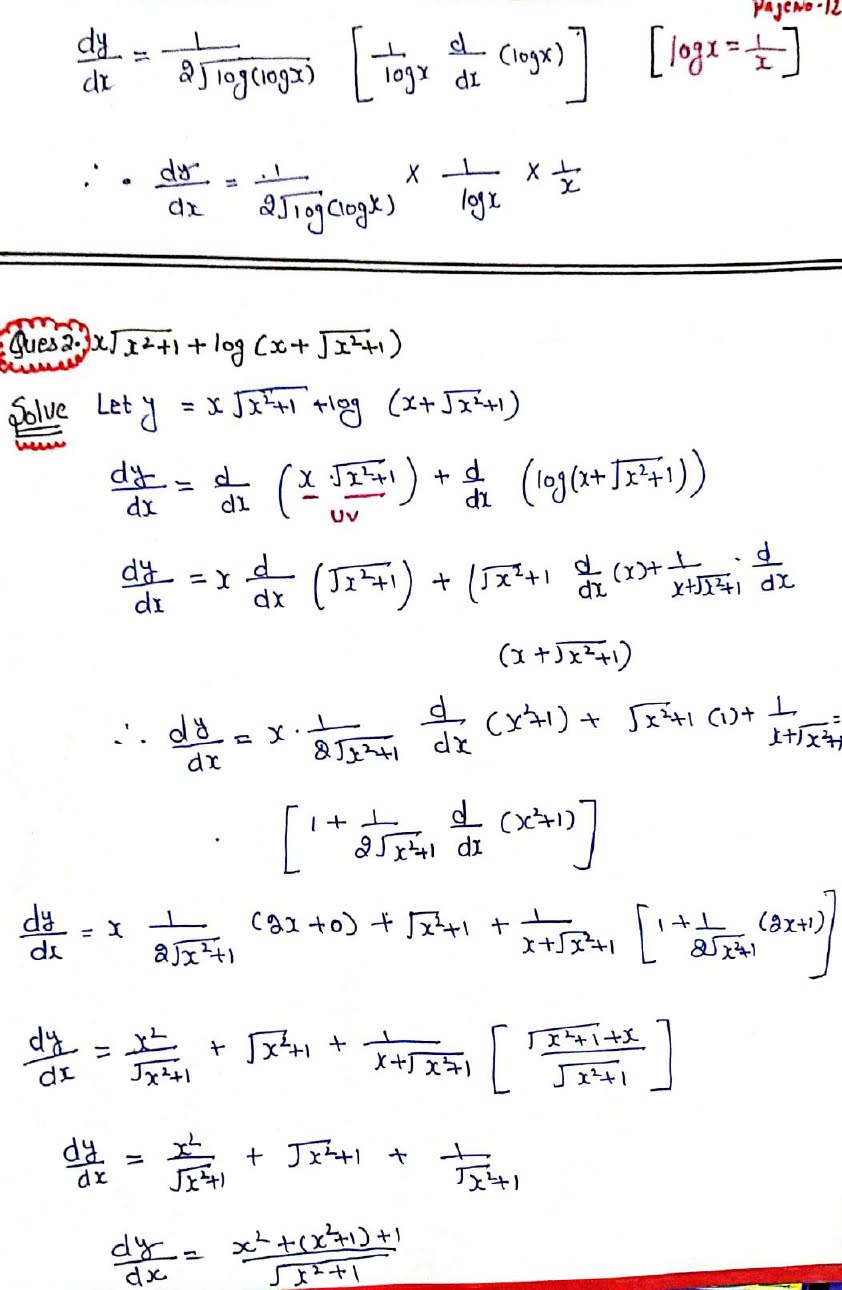 Page No-12
dy/dx = 1/2√log(logx) [1/logx d/dx (logx)] [logx = 1/x]
∴ dy/dx = 1/2√log(logx) × 1/logx × 1/x
Ques 2. x√x²+1 + log (x + √x²+1)
Solve Let y = x √x²+1 + log (x + √x²+1)
dy/dx = d/dx (x · √x²+1) + d/dx (log(x + √x²+1))
UV
dy/dx = x d/dx (√x²+1) + (√x²+1 d/dx (x) + 1/x+√x²+1 · d/dx
(x + √x²+1)
∴ dy/dx = x · 1/2√x²+1 d/dx (x²+1) + √x²+1 (1) + 1/x+√x²+1 =
[1 + 1/2√x²+1 d/dx (x²+1)]
dy/dx = x 1/2√x²+1 (2x+0) + √x²+1 + 1/x+√x²+1 [1 + 1/2√x²+1 (2x+1)]
dy/dx = x²/√x²+1 + √x²+1 + 1/x+√x²+1 [√x²+1 + x/√x²+1]
dy/dx = x²/√x²+1 + √x²+1 + 1/√x²+1
dy/dx = x² + (x²+1) + 1/√x²+1